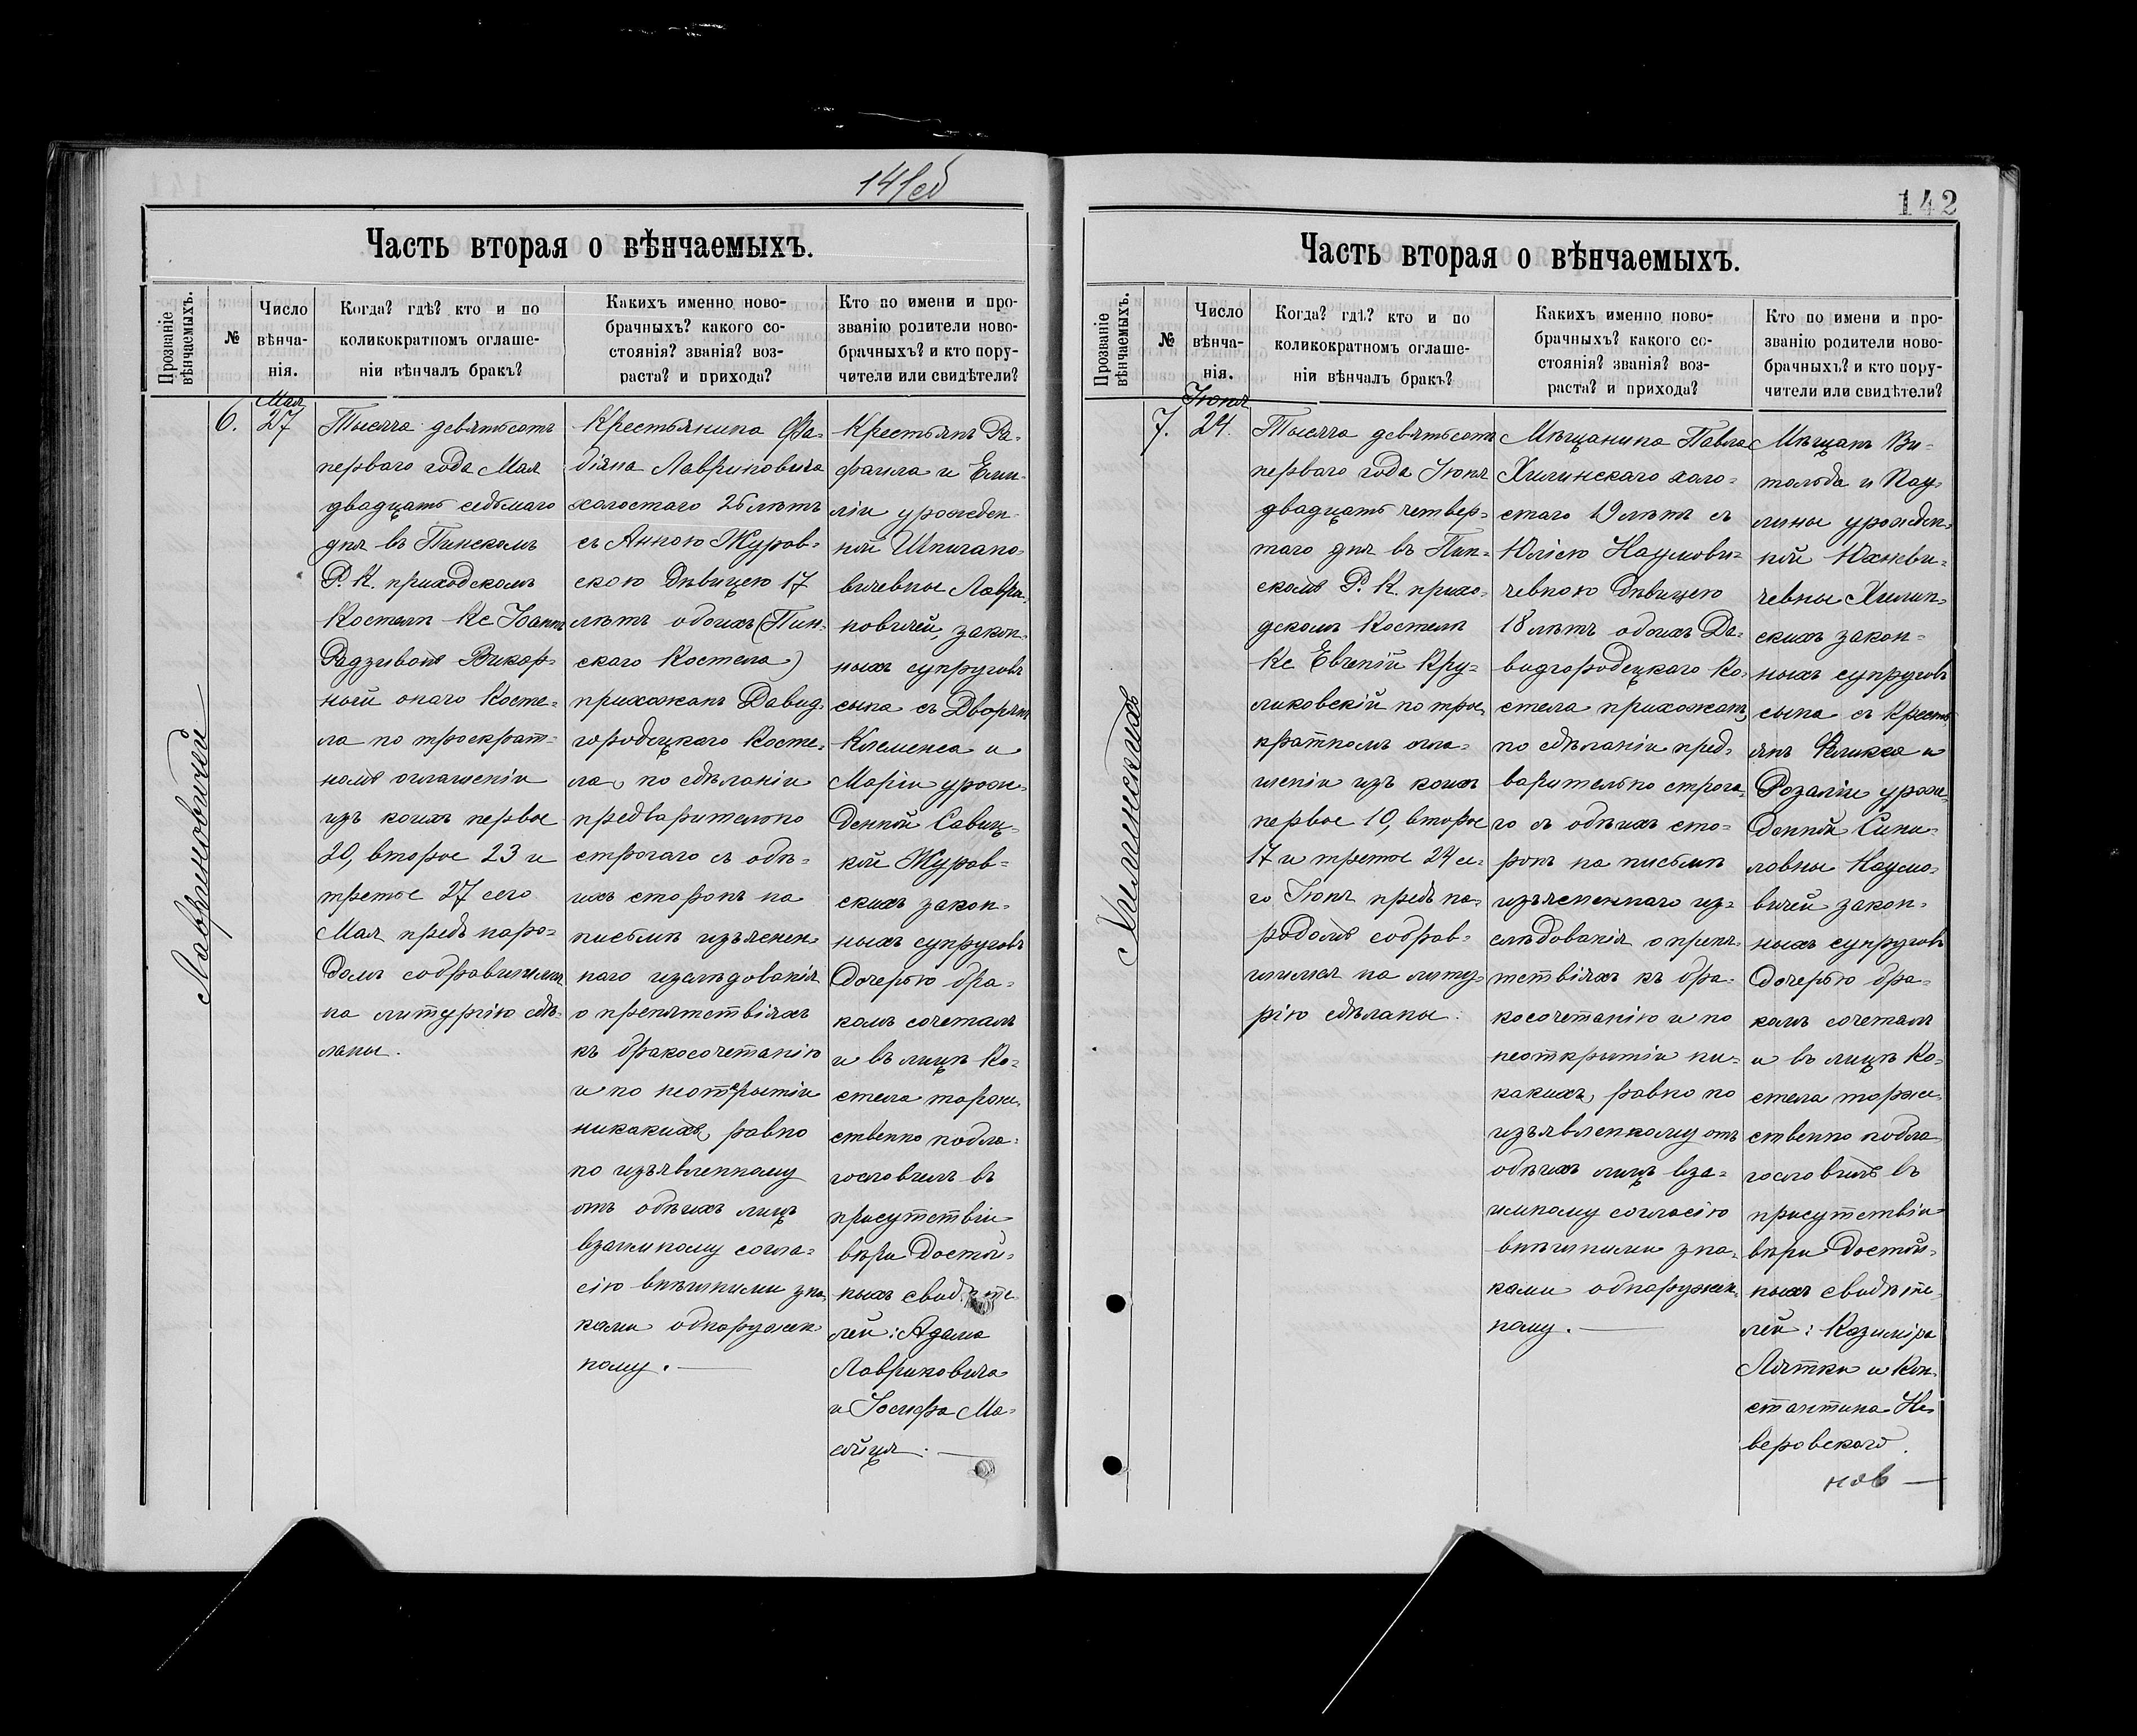 141об
Часть вторая о вѣнчаемыхъ.
Прозваніе
вѣнчаемыхъ.
№
Число
вѣнча-
нія.
Когда? гдѣ? кто и по
коликократномъ оглаше-
ніи вѣнчалъ бракъ?
Какихъ именно ново-
брачныхъ? какого со-
стоянія? званія? воз-
раста? и прихода?
Кто по имени и про-
званію родители ново-
брачныхъ? и кто пору-
чители или свидѣтели?
Лавриновичей
6.
Мая
27
Тысяча девятьсотъ
перваго года Мая
двадцать седьмаго
дня въ Пинскомъ
Р. К. приходскомъ
Костелѣ Кс Іоаннъ
Радзивонъ Викар-
ный онаго Косте-
ла по троекрат-
номъ оглашеніи
изъ коихъ первое
20, второе 23 и
третье 27 сего
Мая предъ наро-
домъ собравшимся
на литургію сдѣ-
ланы.
Крестьянина Фа-
біяна Лавриновича
холостаго 26 лѣтъ
съ Анною Журов-
скою дѣвицею 17
лѣтъ обоихъ (Пин-
скаго Костела)
прихожанъ Давид-
городецкаго Косте-
ла, по сдѣланіи
предварительно
строгаго съ обѣ-
ихъ сторонъ на
письмѣ изъяснен-
наго изслѣдованія
о препятствіяхъ
къ бракосочетанію
и по неоткрытіи
никакихъ, равно
по изъявленному
отъ обѣихъ лицъ
взаимному согла-
сію внѣшними зна-
ками обнаружен-
ному.
Крестьянъ Ра-
фаила и Еми-
ліи урожден-
ной Шпигано-
вичевны Лаври-
новичей, закон-
ныхъ супруговъ
сына съ Дворянъ
Клеменса и
Маріи урож-
денной Савиц-
кой Журов-
скихъ закон-
ныхъ супруговъ
дочерью бра-
комъ сочеталъ
и въ лицѣ Ко-
стела торже-
ственно побла-
гословилъ въ
присутствіи
вѣры достой-
ныхъ свидѣте-
лей: Адама
Лавриновича
и Іосифа Мо-
сійца.
142
Часть вторая о вѣнчаемыхъ.
Прозваніе
вѣнчаемыхъ.
№
Число
вѣнча-
нія.
Когда? гдѣ? кто и по
коликократномъ оглаше-
ніи вѣнчалъ бракъ?
Какихъ именно ново-
брачныхъ? какого со-
стоянія? званія? воз-
раста? и прихода?
Кто по имени и про-
званію родители ново-
брачныхъ? и кто пору-
чители или свидѣтели?
Хилинскихъ
7.
Іюня
24.
Тысяча девятьсотъ
перваго года Іюня
двадцать четвер-
таго дня въ Пин-
скомъ Р. К. прихо-
дскомъ Костелѣ
Кс Евгеній Кру-
ликовскій по трое-
кратномъ огла-
шеніи изъ коихъ
первое 10, второе
17 и третье 24 се-
го Іюня предъ на-
родомъ собрав-
шимся на литу-
ргію сдѣланы.
Мѣщанина Павла
Хилинскаго холо-
стаго 19 лѣтъ съ
Юліею Наумови-
чевною дѣвицею
18 лѣтъ обоихъ Да-
видгородецкаго Ко-
стела прихожанъ,
по сдѣланіи пред-
варительно строга-
го съ обѣихъ сто-
ронъ на письмѣ
изъясненнаго из-
слѣдованія о препя-
тствіяхъ къ бра-
косочетанію и по
неоткрытіи ни-
какихъ, равно по
изъявленному отъ
обѣихъ лицъ вза-
имному согласію
внѣшними зна-
ками обнаружен-
ному.
Мѣщанъ Ви-
тольда и Пау-
лины урожден-
ной Юхневи-
чевны Хилин-
скихъ закон-
ныхъ супруговъ
сына съ Кресть-
янъ Феликса и
Розаліи урож-
денной Сини-
ловны Наумо-
вичей закон-
ныхъ супруговъ
дочерью бра-
комъ сочеталъ
и въ лицѣ Ко-
стела торже-
ственно побла-
гословилъ въ
присутствіи
вѣры достой-
ныхъ свидѣте-
лей: Казиміра
Лятки и Кон-
стантина Не-
веровскаго.